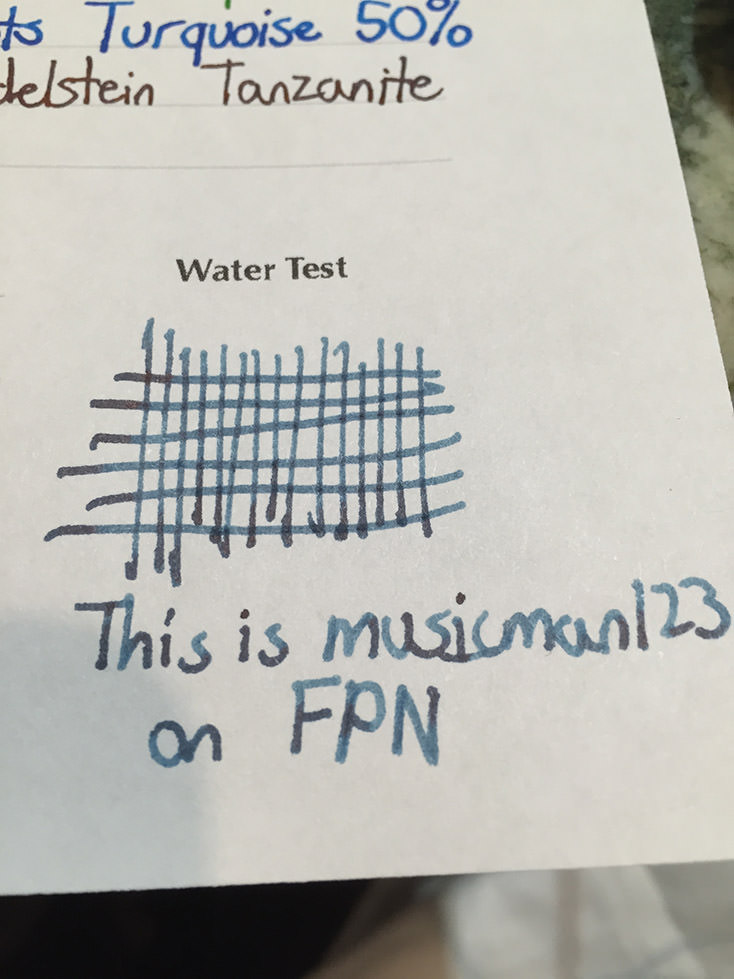 ts Turquoise 50%
delstein Tanzanite
Water Test
This is musicman123
on FPN